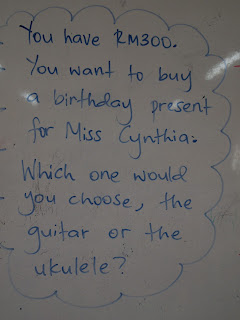 You have RM300.
You want to buy
a birthday present
for Miss Cynthia.
Which one would
you choose, the
guitar or the
ukulele?